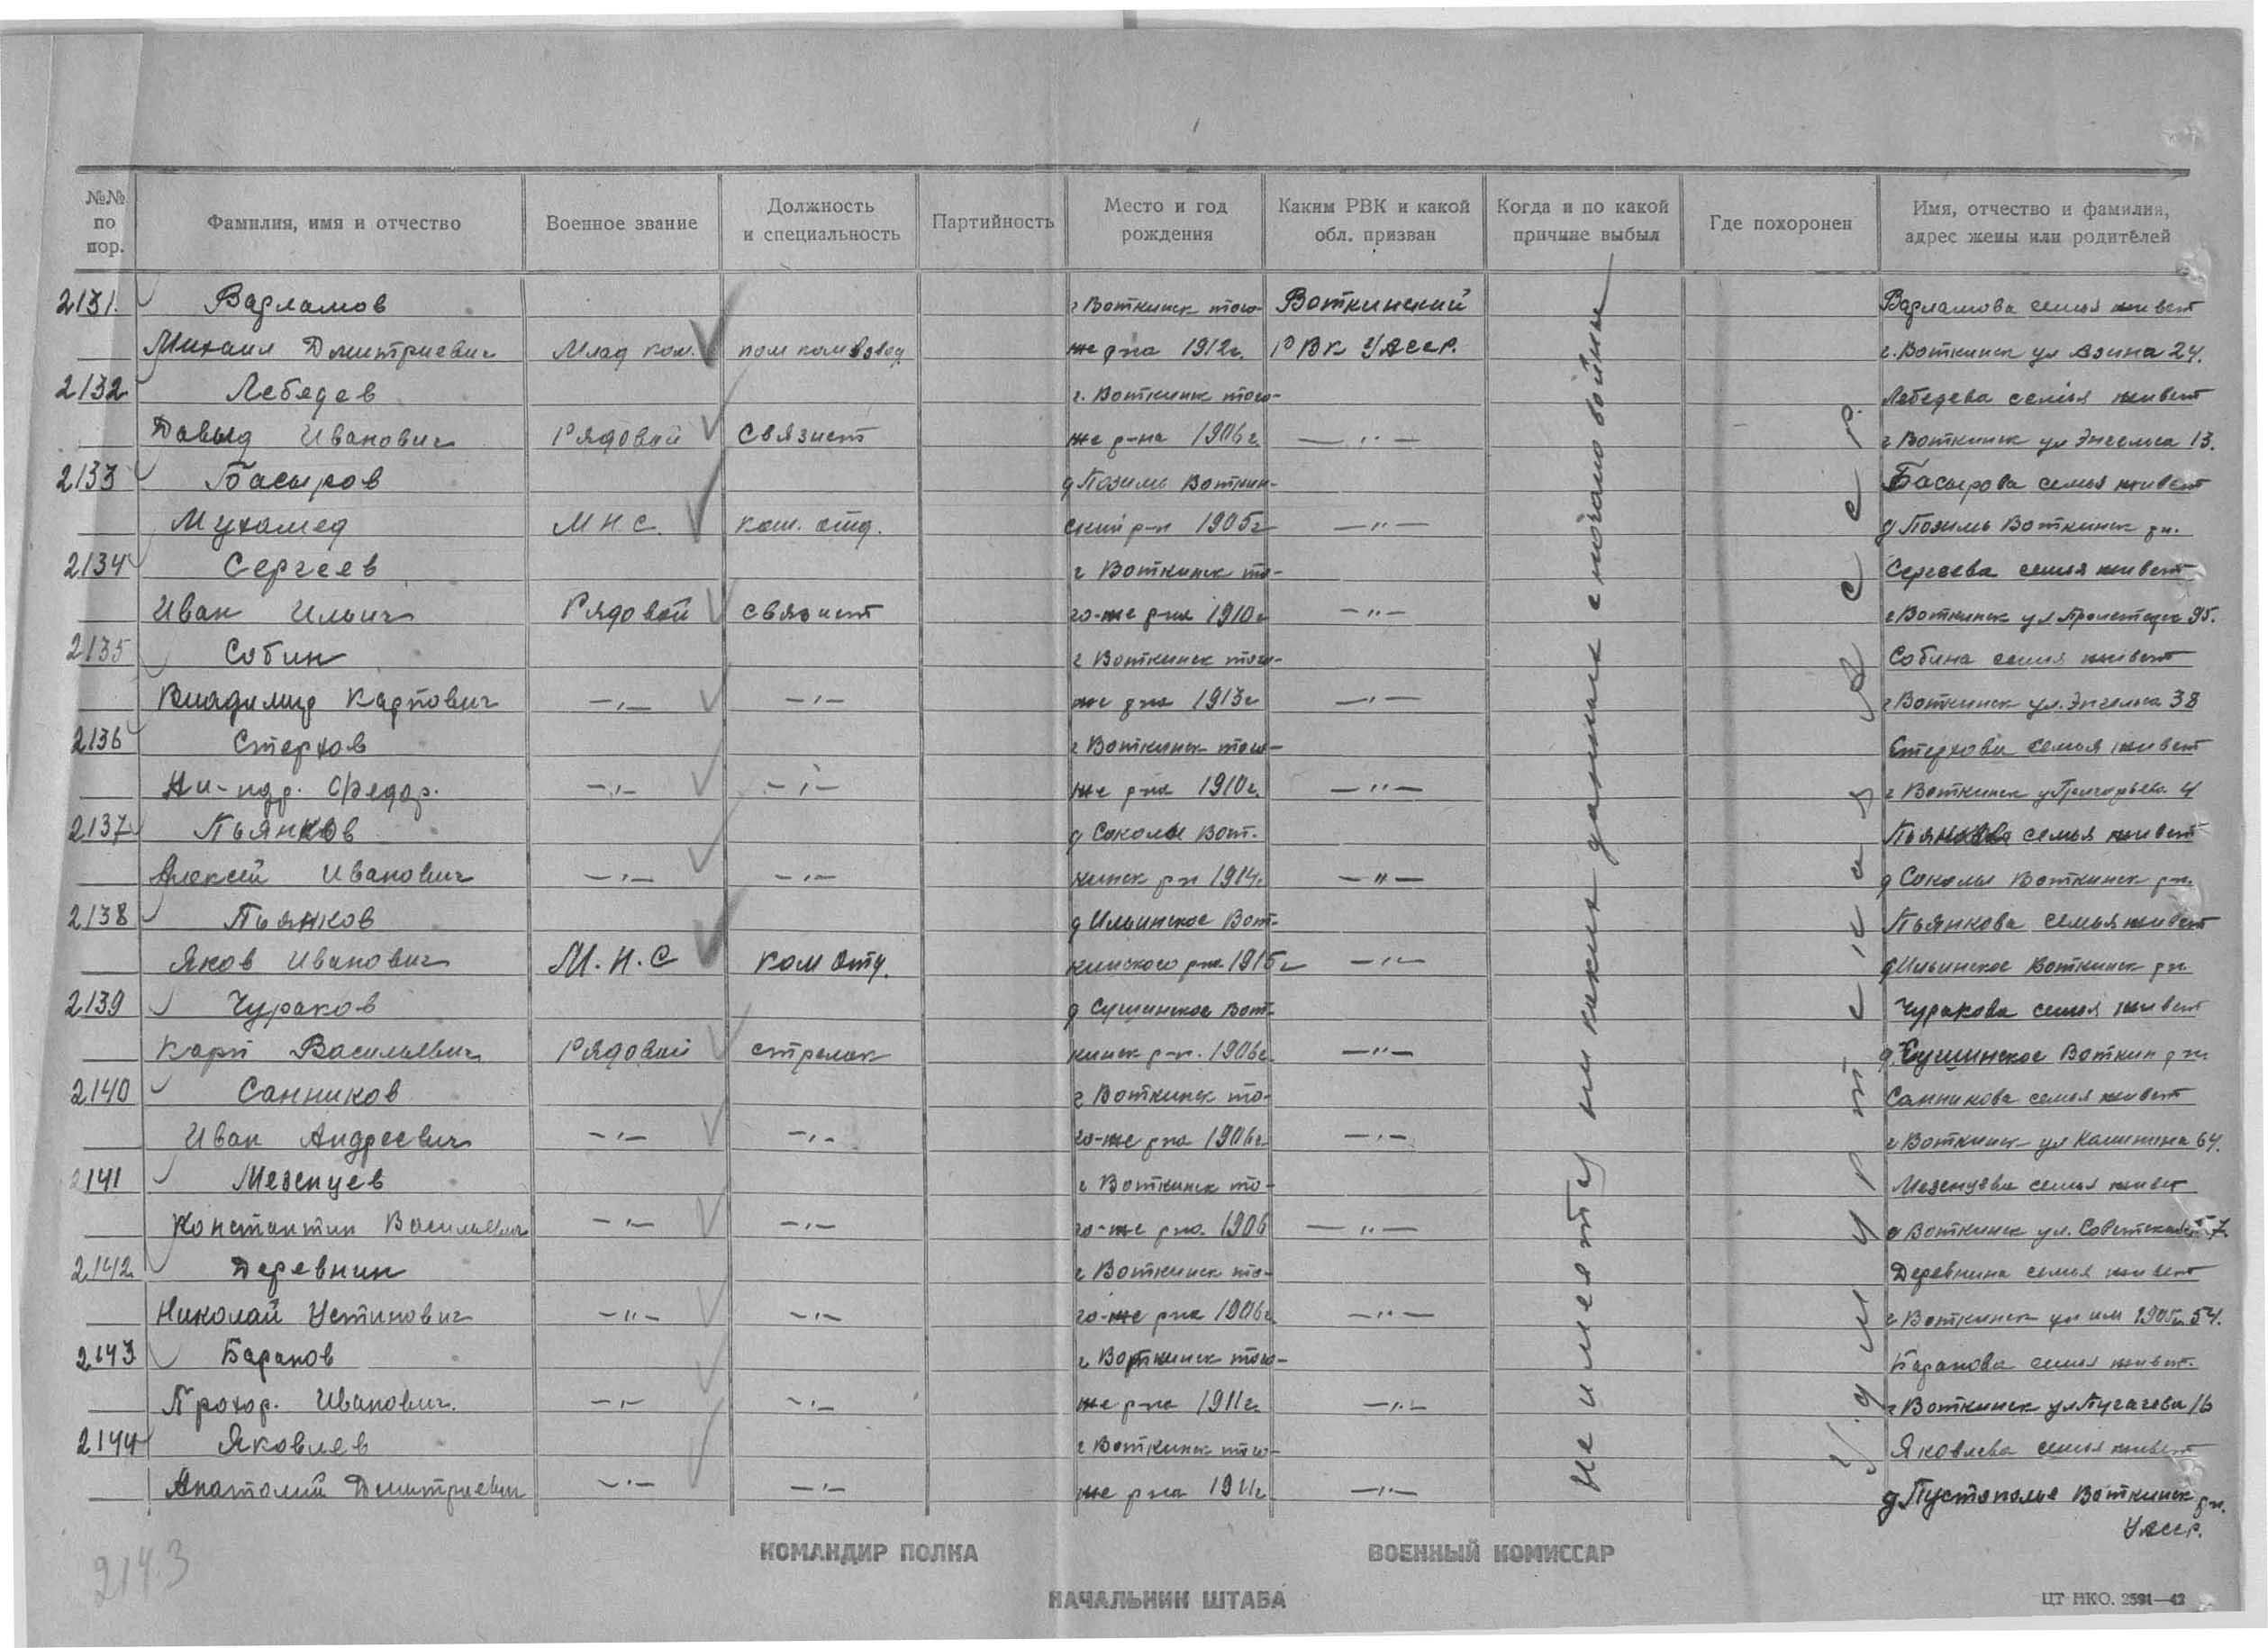 №№ по пор. Фамилия, имя и отчество Военное звание Должность и специальность Партийность Место и год рождения Каким РВК и какой обл. призван Когда и по какой причине выбыл Где похоронен Имя, отчество и фамилия, адрес жены или родителей
2131. Варламов г Воткинск того- Воткинский Варламова семья живет
Михаил Дмитриевич Млад ком. пом ком взвод же р-на 1912г. РВК УАССР. г. Воткинск ул Азина 24.
2132 Лебедев г. Воткинск того- Лебедева семья живет
Давыд Иванович Рядовой Связист же р-на 1906г. —"— г Воткинск ул Энгельса 13.
2133 Басыров д Позимь Воткин- Басырова семья живет
Мухамед М Н С. ком. отд. ский р-н 1905г —"— д Позимь Воткинск рн.
2134 Сергеев г Воткинск то- Сергеева семья живет
Иван Ильич Рядовой связист го-же р-на 1910г —"— г Воткинск ул Пролетарс 95.
2135 Собин г Воткинск того- Собина семья живет
Владимир Карпович —"— —"— же рна 1913г —"— г Воткинск ул. Энгельса 38
2136 Стерхов г Воткинск того- Стерхова семья живет
Федор. —"— —"— же рна 1910г. —"— г Воткинск у Григорьева 4
2137 Пьянков д Соколы Вот- Пьянкова семья живет
Алексей Иванович —"— —"— кинск рн 1914г. —"— д Соколы Воткинск рн.
2138 Пьянков д Ильинское Вот- Пьянкова семья живет
Яков Иванович М. Н. С ком отд. кинского рна 1915г —"— д Ильинское Воткинск рн
2139 Чураков д Сушинское Вот- Чуракова семья живет
Карп Васильевич Рядовой стрелок кинск р-н. 1906г. —"— д. Сушинское Воткин рн
2140 Санников г Воткинск то- Санникова семья живет
Иван Андреевич —"— —"— го-же рна 1906г —"— г Воткинск ул Калинина 64.
2141 Мезенцев г Воткинск то- Мезенцева семья живет
Константин Васильевич —"— —"— го-же рна. 1906 —"— г Воткинск ул. Советская 7
2142 Деревнин г Воткинск то- Деревнина семья живет
Николай Устинович —"— —"— го-же рна 1906г. —"— г Воткинск ул им 1905г. 54.
2143 Баранов г Воткинск того- Баранова семья живет.
Прохор. Иванович. —"— —"— же р-на 1911г. —"— г Воткинск ул Пугачева 16
2144 Яковлев г Воткинск того- Яковлева семья живет
Анатолий Дмитриевич —"— —"— же рна 1911г. —"— д Пустополье Воткинск рн.
УАССР.
не имеется никаких данных с начало войны
Удмуртская АССР.
2143
КОМАНДИР ПОЛКА ВОЕННЫЙ КОМИССАР
НАЧАЛЬНИК ШТАБА
ЦТ НКО. 2591—42